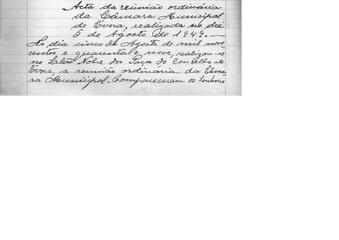 Acta da reunião ordinária
da Câmara Municipal
de Évora, realizada no dia
5 de Agosto de 1949.—
No dia cinco de Agosto de mil nove
centos e quarenta e nove, realizou-se
no Salão Nobre dos Paços do Concelho de
Évora, a reunião ordinária da Câma
ra Municipal. Compareceram os Senhores